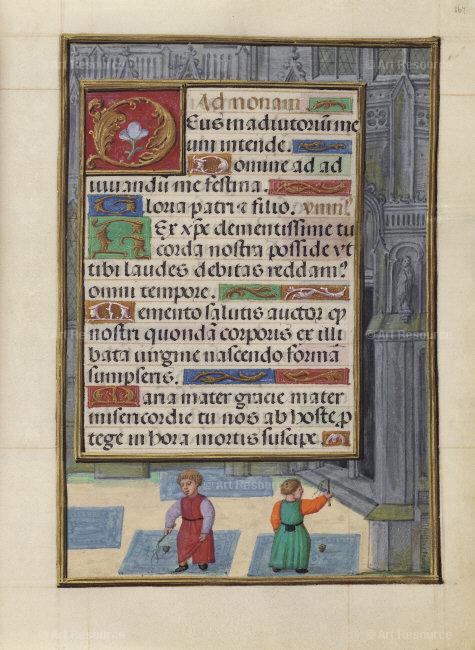 Ad nonam
Deus in adiutorium me
um intende.
Domine ad ad
iuuandū me festina.
Gloria patri ⁊ filio. ymnꝰ
Rex xp̄e clementissime tu
corda nostra posside vt
tibi laudes debitas reddamꝰ
omni tempore.
Memento salutis auctor ꝙ
nostri quondā corporis ex illi
bata uirgine nascendo forma
sumpseris.
Maria mater gracie mater
misericordie tu nos ab hoste ꝓ
tege in hora mortis suscipe.
© Art Resource